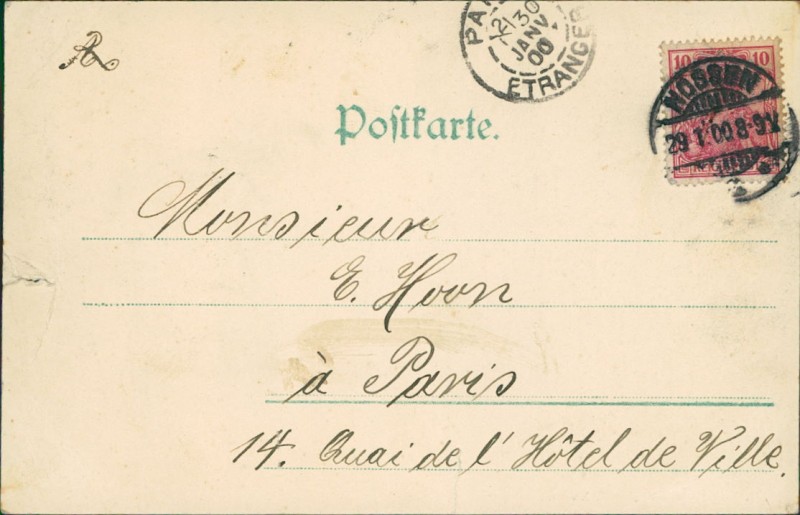 PARIS
30
JANV
00
ETRANGER
10 10
NOSSEN
29.1.00.8-9V.
Postkarte.
Monsieur
E. Hoon
à Paris
14. Quai de l'Hôtel de Ville.